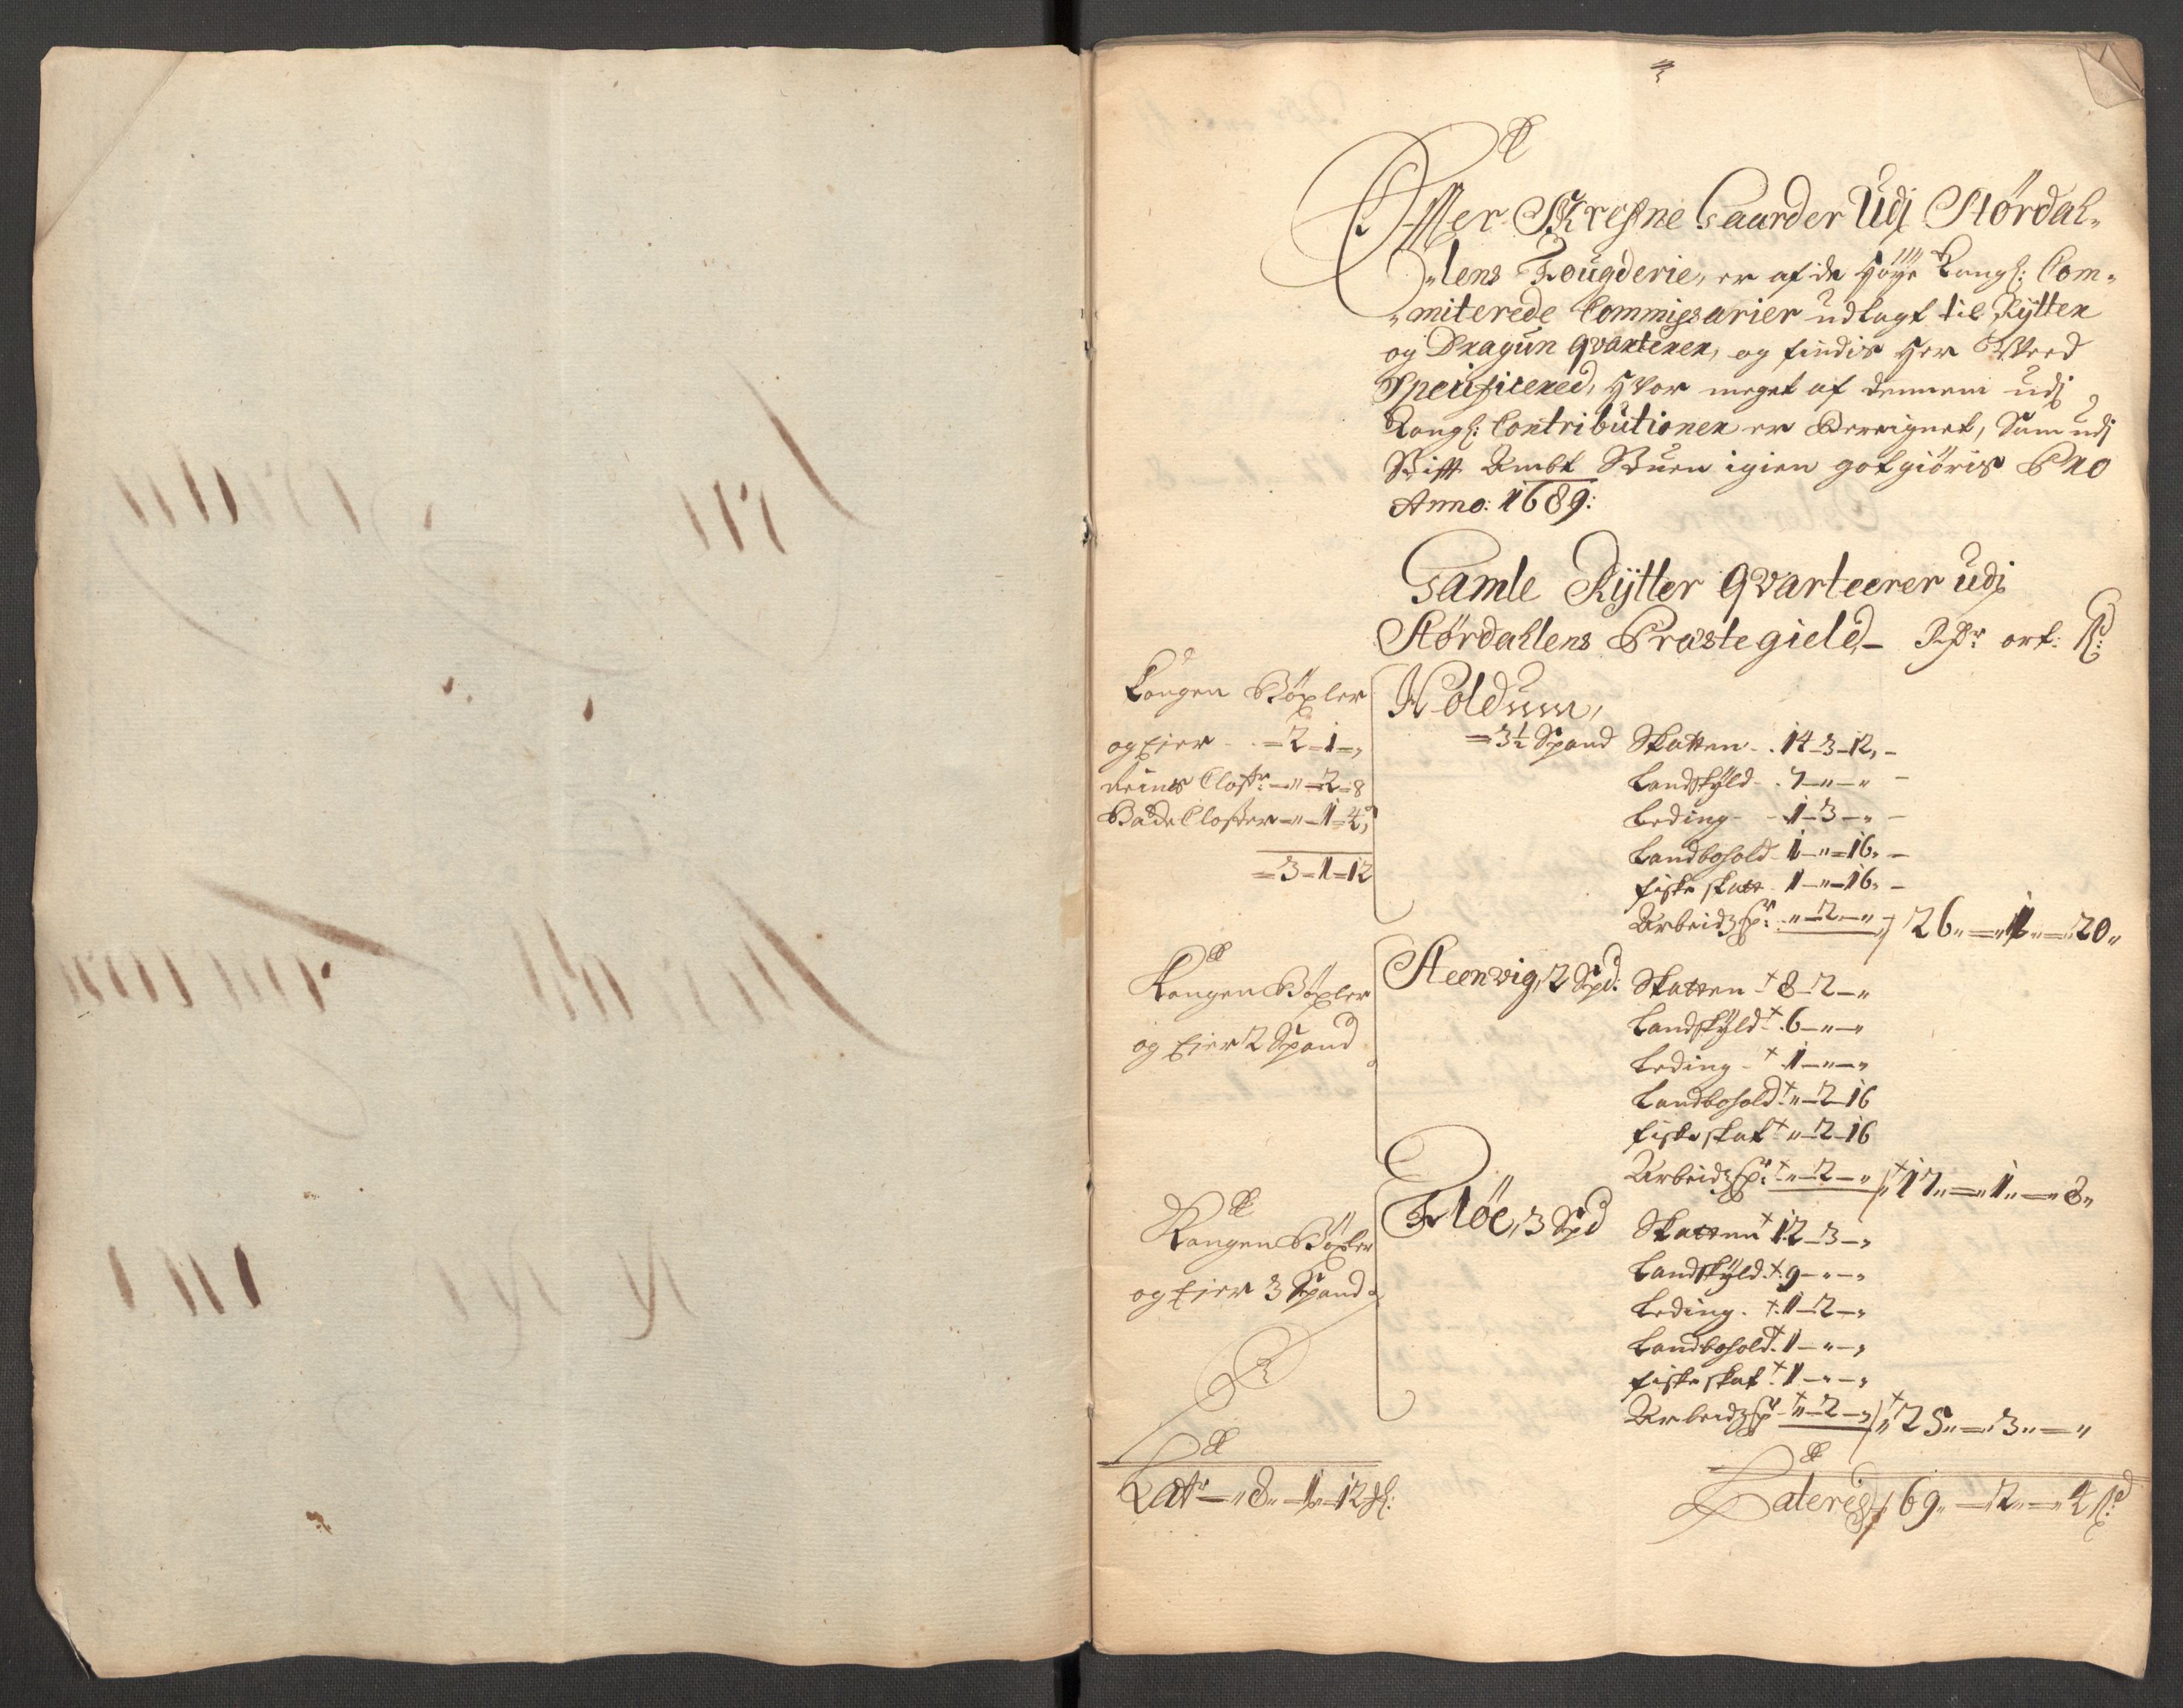 Effter Skrefne Gaarder Udj Størdah-
lens Fougderie, er af de høye Kongl: Com-
miterede Commissarier udlagt til Rytter
og Dragun qvarterer, og findis her Wed
Specificered, hvor meget af dennem udj
Kongl: Contributionen er Bereignet, Som udj
Stift Ambt Stuen igien gotgiøris Pro
Anno: 1689:
Gamle Rytter Qvarteerer udj
Størdahlens Præstegield - Rdr ort: s:
Kongen Böxler
og Eier - 2 - 1 - "
Reins Clostr: - " - 2 - 8
Backe Closter - " - 1 - 4
3 - 1 - 12
Holdum,
3½ Spand Skatten - 14 - 3 - 12
Landskyld - 7 - " - "
Leding - 1 - 3 - "
Landbohold - 1 - " - 16
Fiske skatt - 1 - " - 16
Arbeidzpr: " - 2 - " 26 - 1 - 20
Kongen Böxler
og Eier 2 Spand
Steenvig, 2 Spd: Skatten + 8 - 2 - "
Landskyld + 6 - " - "
Leding + 1 - " - "
Landbohold + " - 2 - 16
Fiske skat + " - 2 - 16
Arbeidzpr: + " - 2 - " + 17 - 1 - 8
Kongen Böxler
og Eier 3 Spand
Fløe, 3 Spd Skatten + 12 - 3 - "
Landskyld + 9 - " - "
Leding + 1 - 2 - "
Landbohold + 1 - " - "
Fiske skat + 1 - " - "
Arbeidzpr + " - 2 - " + 25 - 3 - "
Latr - 8 - 1 - 12 s:
Lateris 69 - 2 - 4 s: